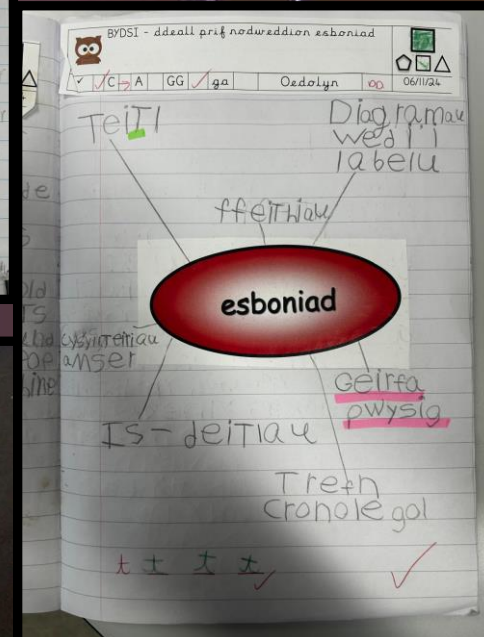 BYDSI - ddeall prif nodweddion esboniad
C → A GG ga Oedolyn 06/11/24
TeiTl
Diagramau
wedi i
labelu
ffeiThiau
esboniad
amser
Geirfa
pwysig
Is-deiTlau
Trefn
Cronolegol
t t t t